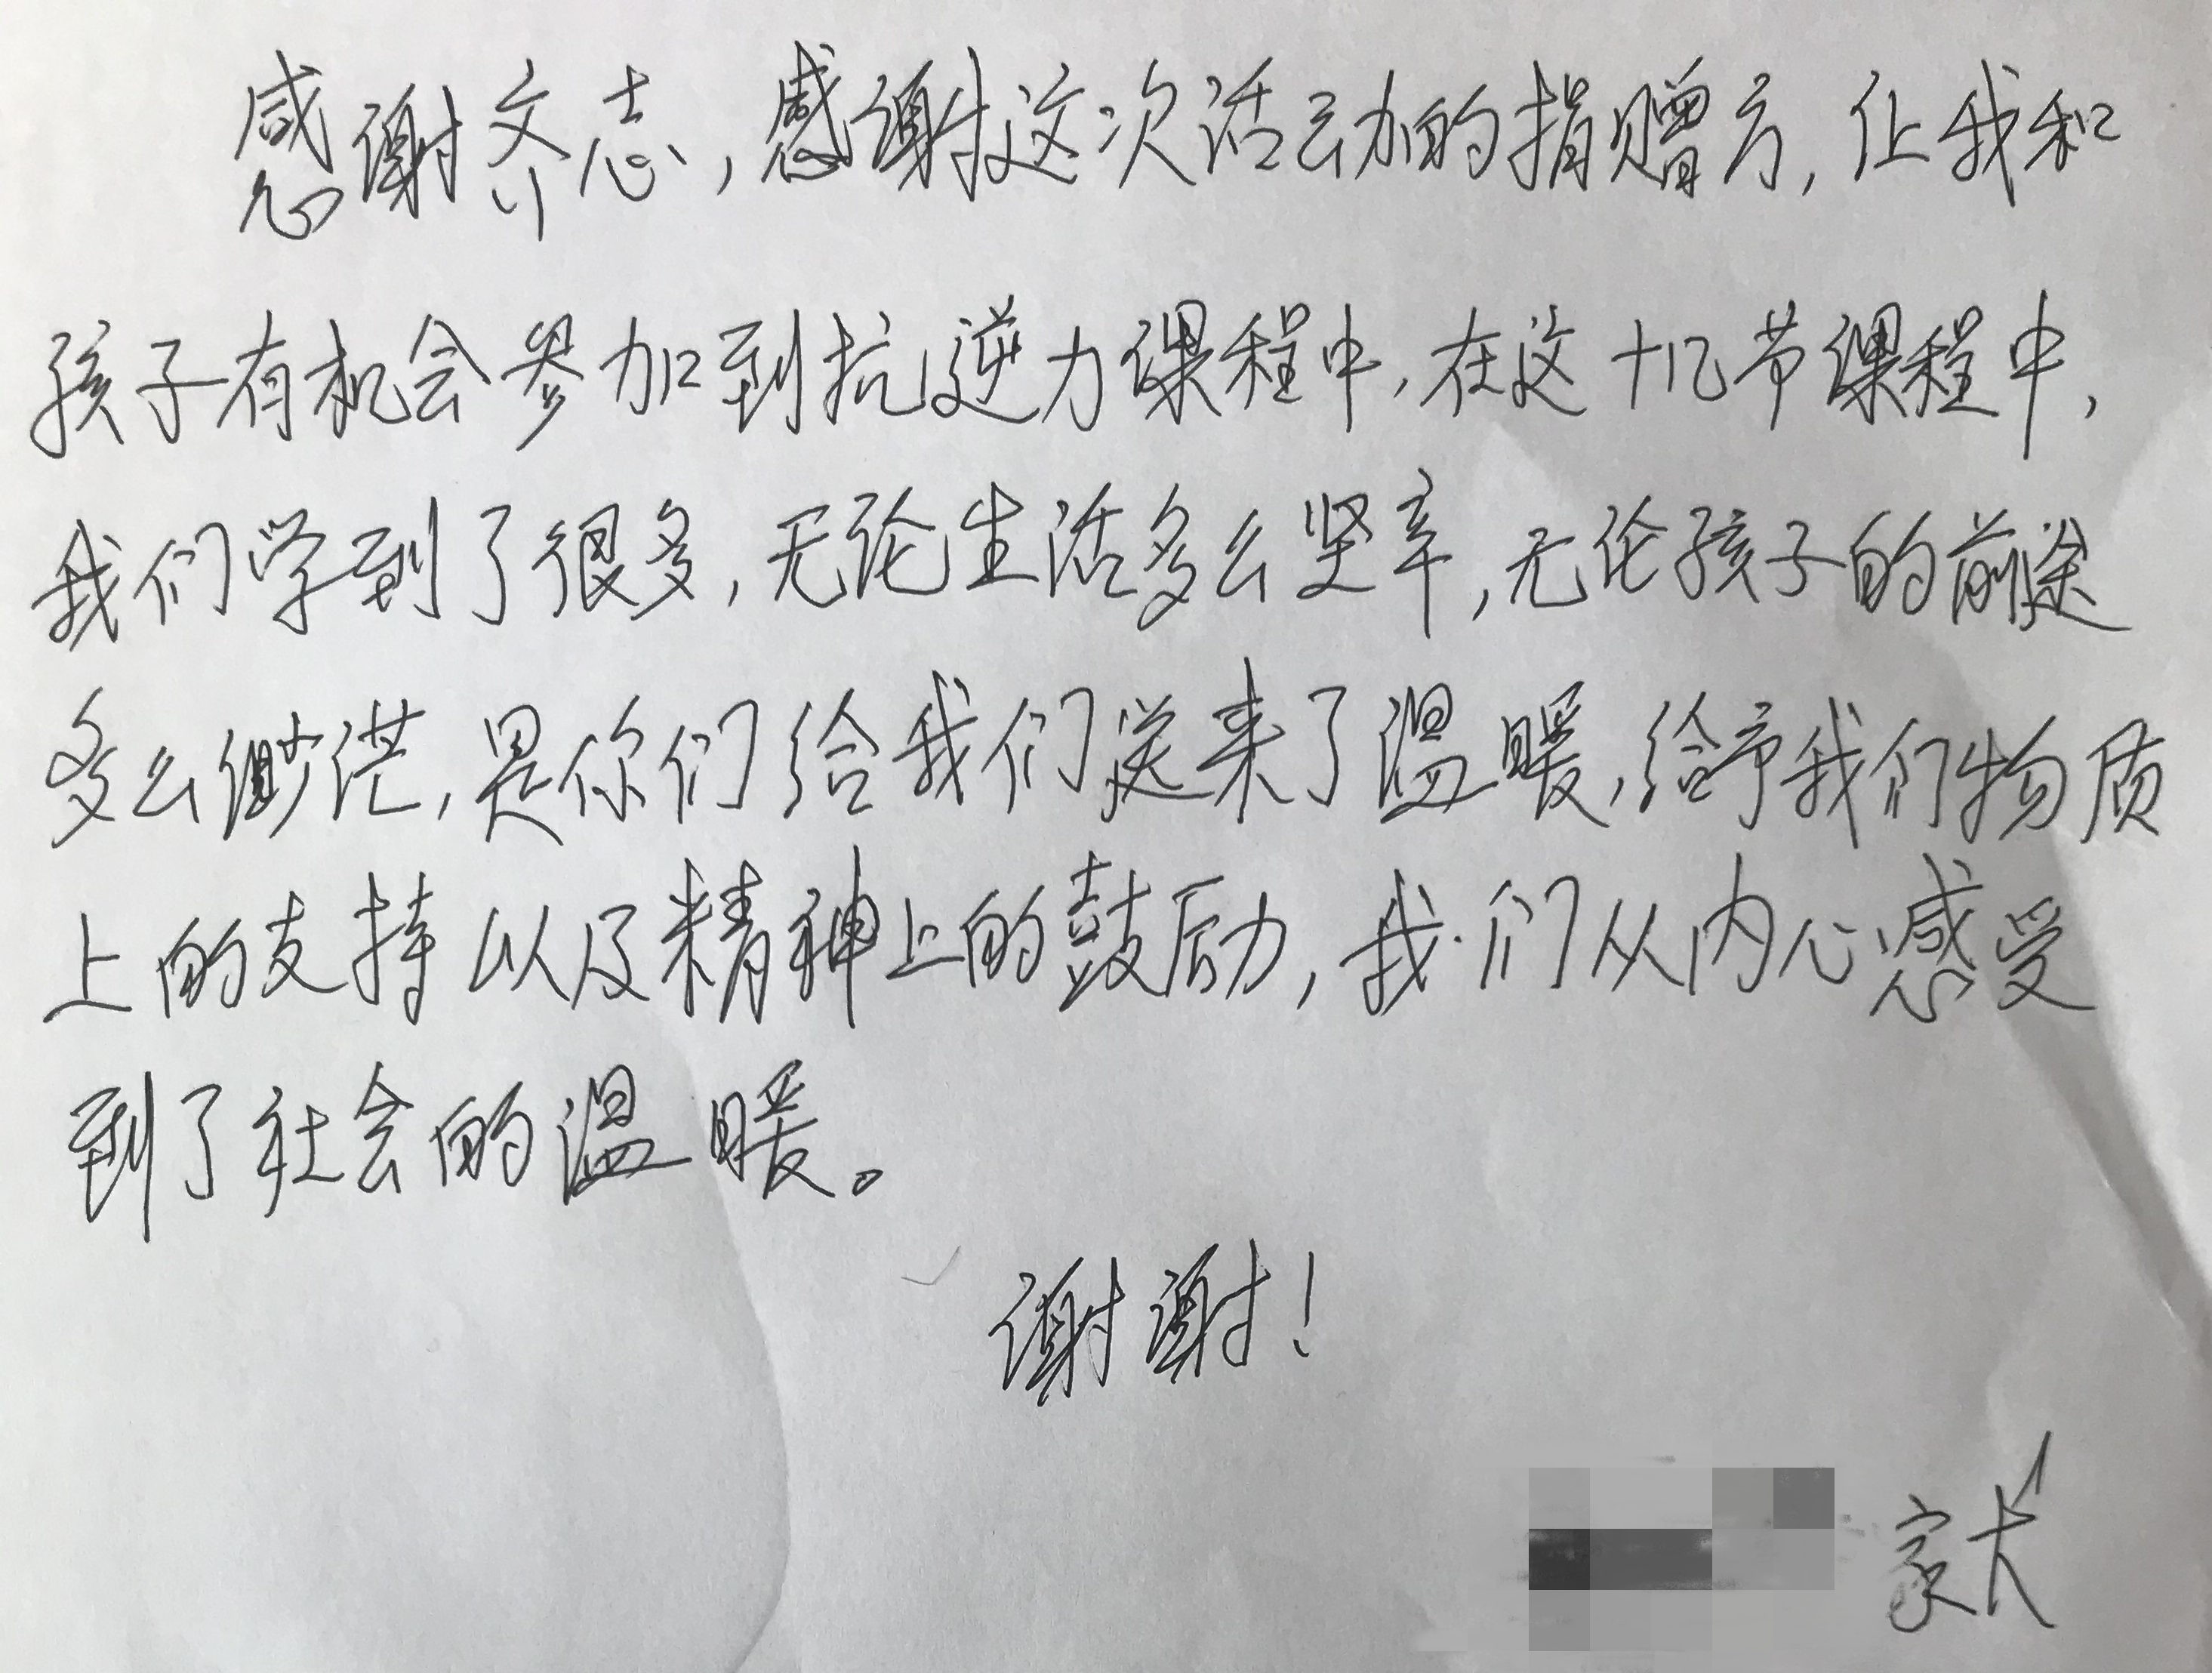 感谢齐志，感谢这次活动的捐赠方，让我和
孩子有机会参加到抗逆力课程中，在这十几节课程中，
我们学到了很多，无论生活多么坚辛，无论孩子的前途
多么渺茫，是你们给我们送来了温暖，给予我们物质
上的支持以及精神上的鼓励，我们从内心感受
到了社会的温暖。
谢谢！
家长